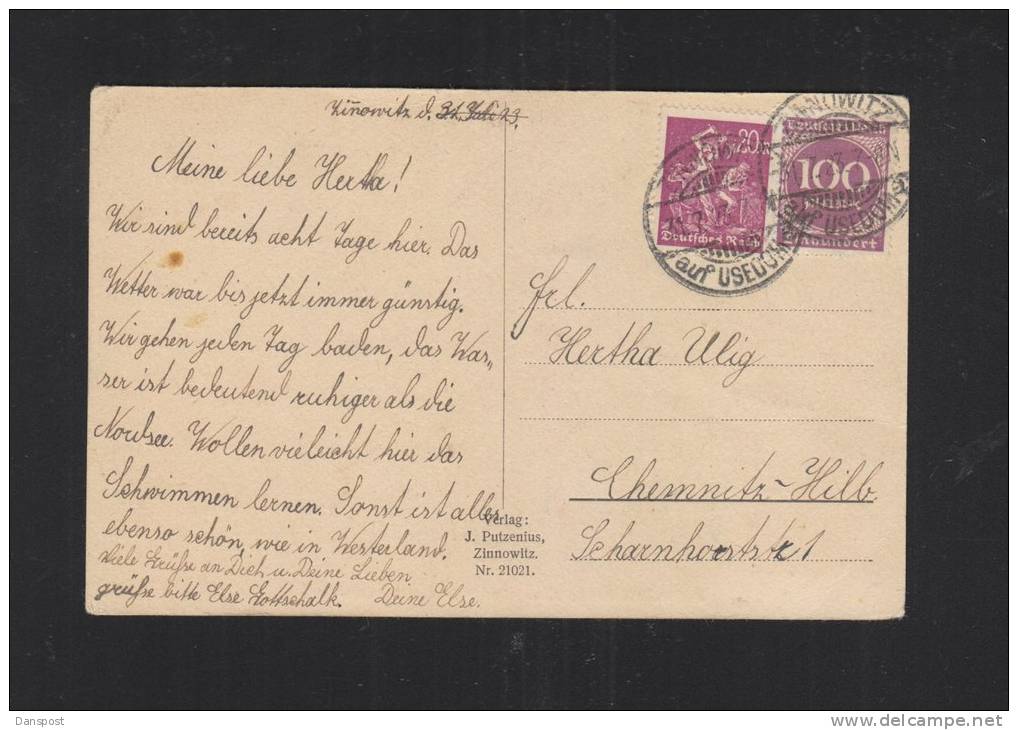 Zinowitz d. 31. Juli 23.
Meine liebe Hertha!
Wir sind bereits acht Tage hier. Das
Wetter war bis jetzt immer günstig.
Wir gehen jeden Tag baden, das Was„
ser ist bedeutend ruhiger als die
Nordsee. Wollen vieleicht hier das
Schwimmen lernen. Sonst ist alles
ebenso schön, wie in Westerland.
Viele Grüße an Dich u. Deine Lieben
grüße bitte Else Gottschalk. Deine Else.
Verlag:
J. Putzenius,
Zinnowitz.
Nr. 21021.
20
Deutsches Reich
auf USEDOM
ZINNOWITZ
Deutsches Reich
100
Einhundert
auf USEDOM
Frl.
Hertha Ulig
Chemnitz-Hilb.
Scharnhorststr 1
Danspost
www.delcampe.net